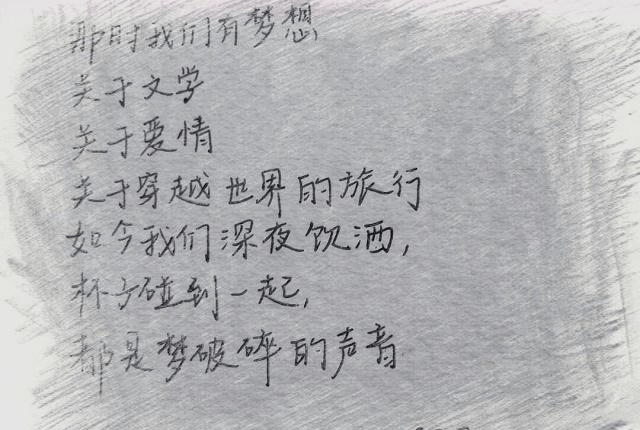 那时我们有梦想
关于文学
关于爱情
关于穿越世界的旅行
如今我们深夜饮酒,
杯子碰到一起,
都是梦破碎的声音